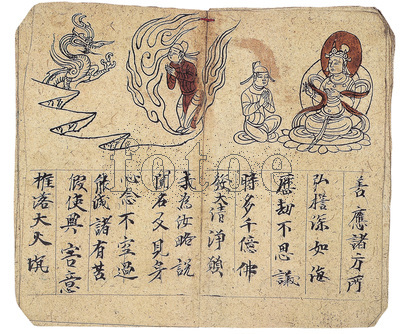 善應諸方所
弘誓深如海
歷劫不思議
侍多千億佛
發大清淨願
我為汝略說
聞名及見身
心念不空過
能滅諸有苦
假使興害意
推落大火坑
fotoe